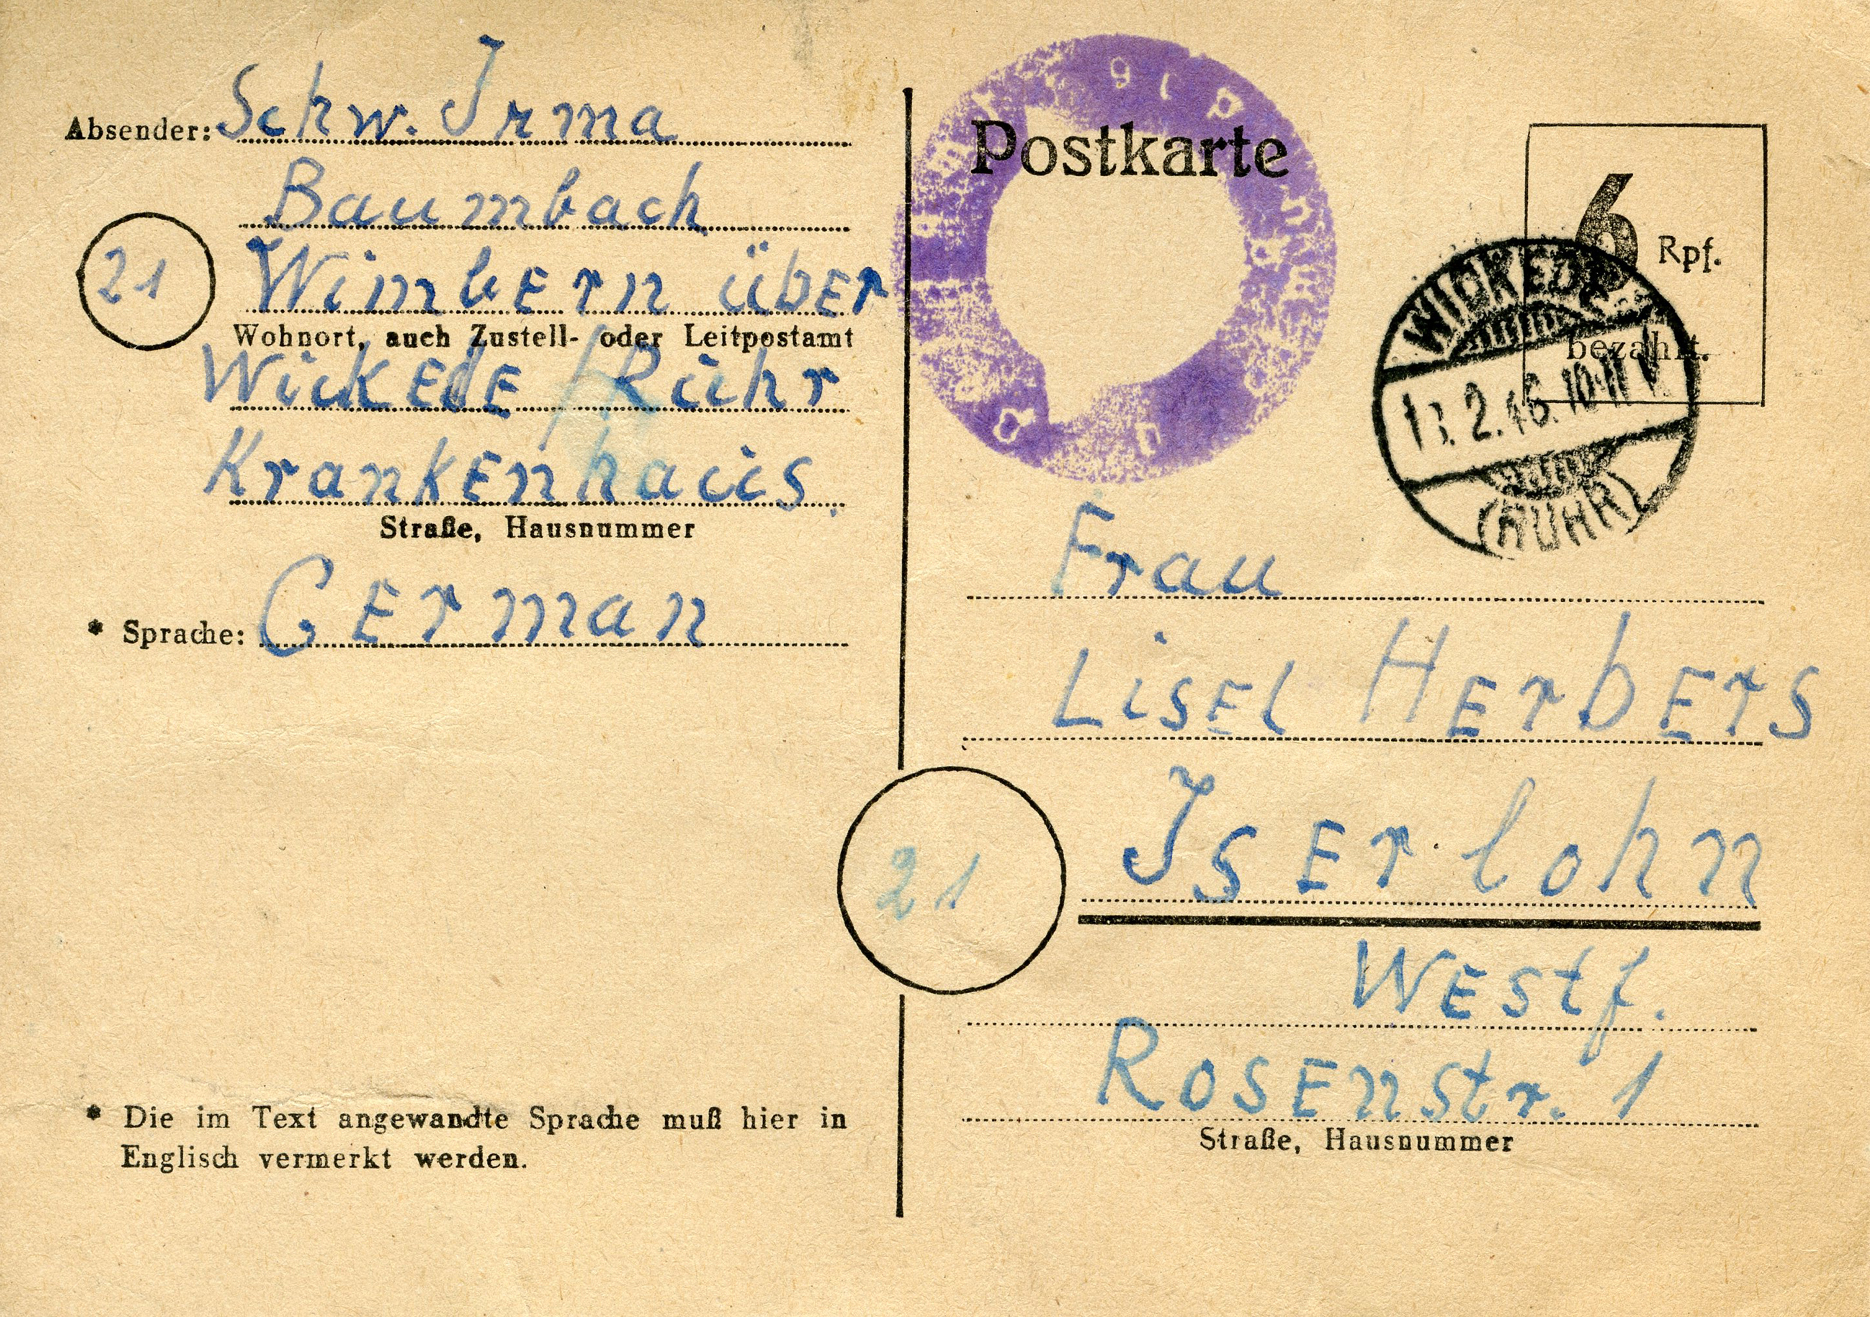 Absender: Schw. Irma
Baumbach
21
Wimbern über
Wohnort, auch Zustell- oder Leitpostamt
Wickede / Ruhr
Krankenhaus.
Straße, Hausnummer
* Sprache: German
* Die im Text angewandte Sprache muß hier in
Englisch vermerkt werden.
Postkarte
6 Rpf.
bezahlt.
WICKEDE
2.46.10-11
(RUHR)
Frau
Lisel Herbers
21
Iserlohn
Westf.
Rosenstr. 1
Straße, Hausnummer